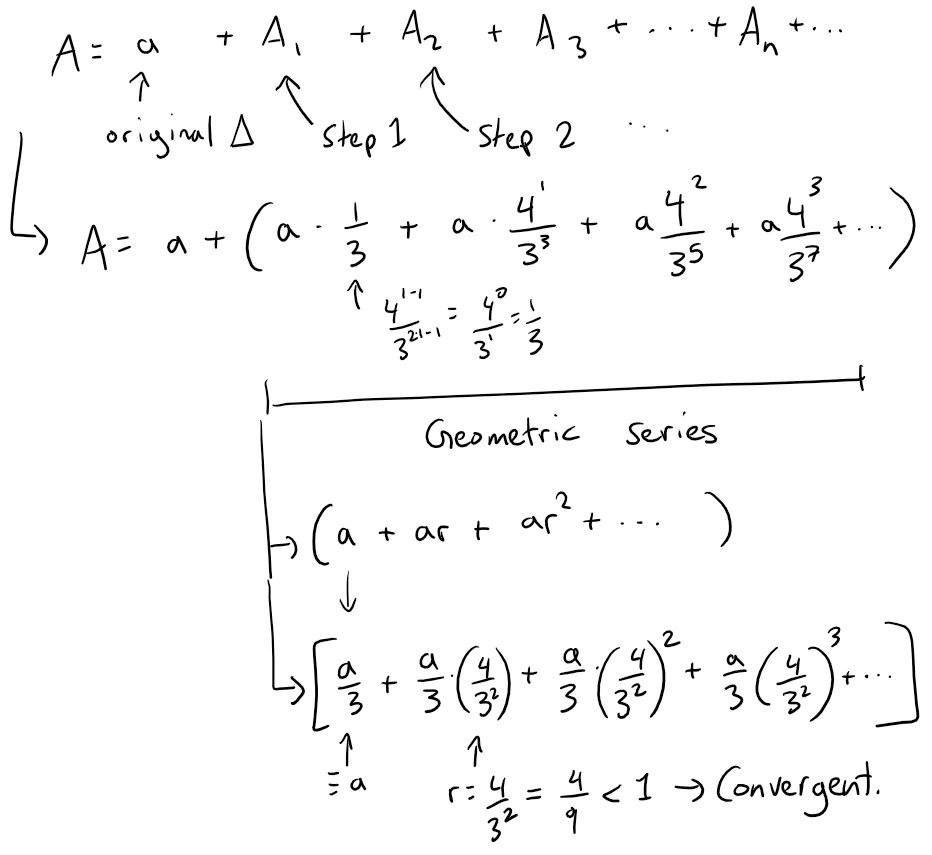 A = a + A₁ + A₂ + A₃ + ... + Aₙ + ...
↑ ↖ ↖
original Δ step 1 step 2 ...
↳ A = a + (a · 1/3 + a · 4¹/3³ + a 4²/3⁵ + a 4³/3⁷ + ...)
↑ 4¹⁻¹/3²·¹⁻¹ = 4⁰/3¹ = 1/3
Geometric series
→ (a + ar + ar² + ...)
↓
→ [a/3 + a/3 · (4/3²) + a/3 · (4/3²)² + a/3 (4/3²)³ + ...]
↑ ↑
≡ a r = 4/3² = 4/9 < 1 → Convergent.